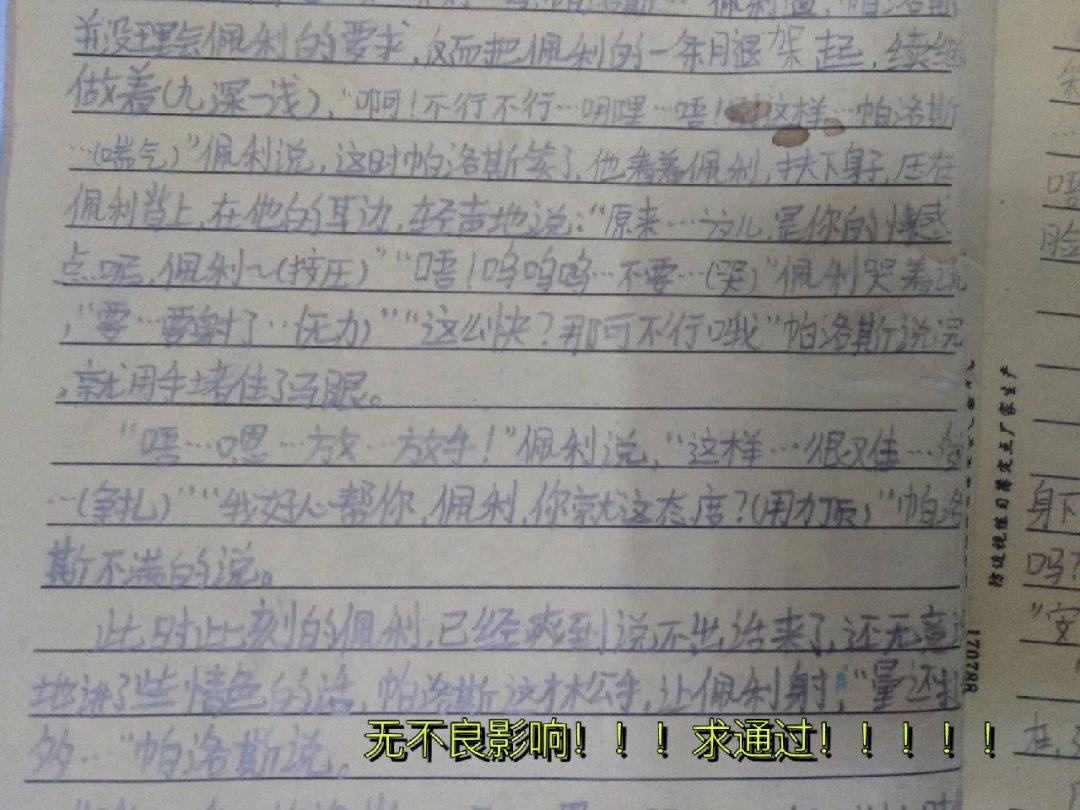 并没理会佩利的要求,反而把佩利的一条月退架起,续继
做着(九深一浅),“啊!不行不行…明哩…唔!这样…帕洛斯
…(喘气)”佩利说,这时帕洛斯笑了,他看着佩利,扶下身子,压在
佩利背上,在他的耳边,轻声地说:“原来…这儿,是你的忄敏感
点呢,佩利~(按压)”“唔!呜呜呜…不要…(哭)”佩利哭着说
,“要…要射了…(无力)”“这么快?那可不行哦”帕洛斯说完
,就用手堵住了马眼。
“唔…嗯…放…放手!”佩利说,“这样…很又隹…受
…(争扎)”“我好心帮你,佩利,你就这态度?(用力顶)”帕洛
斯不满的说。
此时此刻的佩利,已经爽到说不出话来了,还无意识
地讲了些情色的话,帕洛斯这才松手,让佩利射,“量还
多…”帕洛斯说。
无不良影响!!!求通过!!!!!
防近视练习簿定点厂家生产
170788
身下
吗?